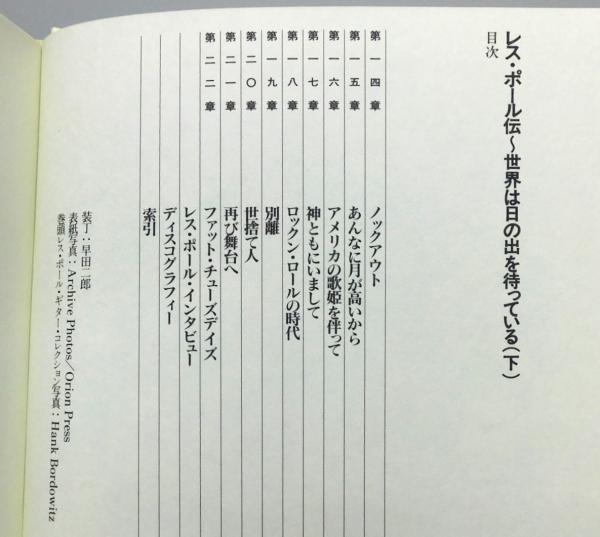 レス・ポール伝〜世界は日の出を待っている(下)
目次
第一四章 ノックアウト
第一五章 あんなに月が高いから
第一六章 アメリカの歌姫を伴って
第一七章 神ともにいまして
第一八章 ロックン・ロールの時代
第一九章 別離
第二〇章 世捨て人
第二一章 再び舞台へ
第二二章 ファット・チューズデイズ
レス・ポール・インタビュー
ディスコグラフィー
索引
装丁:早田二郎
表紙写真:Archive Photos/Orion Press
巻頭レス・ポール・ギター・コレクション写真:Hank Bordowitz